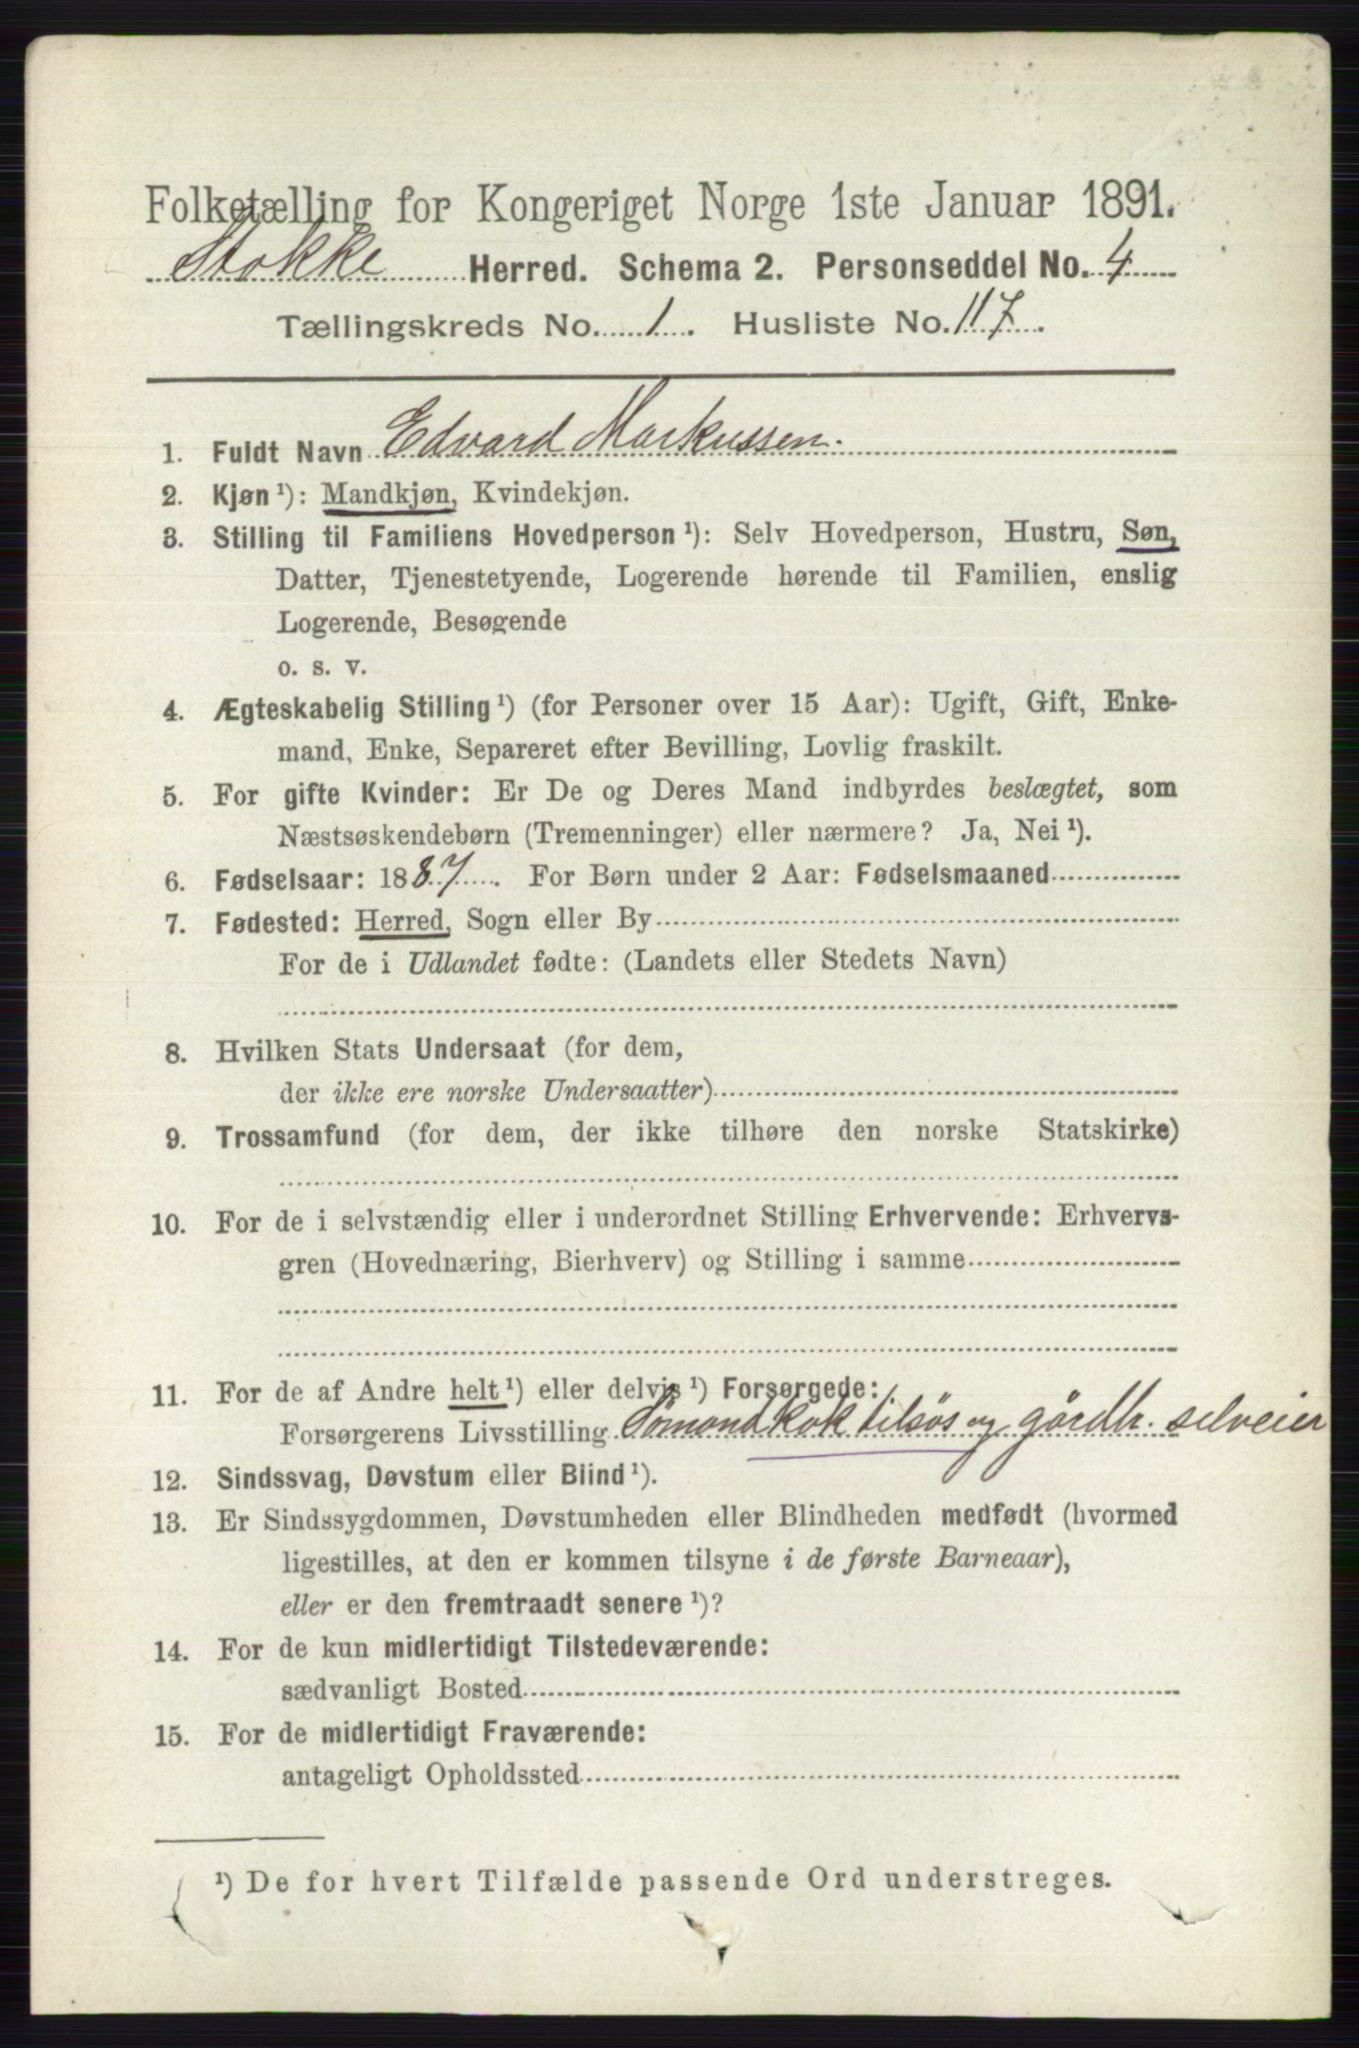 Folketælling for Kongeriget Norge 1ste Januar 1891.
Stokke Herred. Schema 2. Personseddel No. 4
Tællingskreds No. 1. Husliste No. 117.
1. Fuldt Navn Edvard Markussen.
2. Kjøn ¹): Mandkjøn, Kvindekjøn.
3. Stilling til Familiens Hovedperson ¹): Selv Hovedperson, Hustru, Søn,
Datter, Tjenestetyende, Logerende hørende til Familien, enslig
Logerende, Besøgende
o. s. v.
4. Ægteskabelig Stilling ¹) (for Personer over 15 Aar): Ugift, Gift, Enke-
mand, Enke, Separeret efter Bevilling, Lovlig fraskilt.
5. For gifte Kvinder: Er De og Deres Mand indbyrdes beslægtet, som
Næstsøskendebørn (Tremenninger) eller nærmere? Ja, Nei ¹).
6. Fødselsaar: 1887. For Børn under 2 Aar: Fødselsmaaned
7. Fødested: Herred, Sogn eller By
For de i Udlandet fødte: (Landets eller Stedets Navn)
8. Hvilken Stats Undersaat (for dem,
der ikke ere norske Undersaatter)
9. Trossamfund (for dem, der ikke tilhøre den norske Statskirke)
10. For de i selvstændig eller i underordnet Stilling Erhvervende: Erhvervs-
gren (Hovednæring, Bierhverv) og Stilling i samme
11. For de af Andre helt ¹) eller delvis ¹) Forsørgede:
Forsørgerens Livsstilling Sömand kok tilsøs og gårdbr. selveier
12. Sindssvag, Døvstum eller Blind ¹).
13. Er Sindssygdommen, Døvstumheden eller Blindheden medfødt (hvormed
ligestilles, at den er kommen tilsyne i de første Barneaar),
eller er den fremtraadt senere ¹)?
14. For de kun midlertidigt Tilstedeværende:
sædvanligt Bosted
15. For de midlertidigt Fraværende:
antageligt Opholdssted
¹) De for hvert Tilfælde passende Ord understreges.